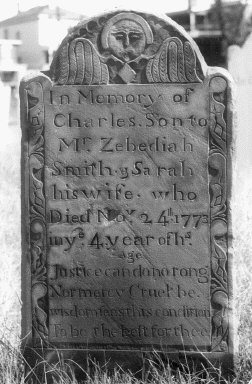 In Memory of
Charles Son to
Mr. Zebediah
Smith. & Sarah
his wife. who
Died Nov. 24th 1773
in ye. 4. year of hs.
age
Justice can do no rong
Nor mercy Cruel be
wisdom this condition
To be the best for thee